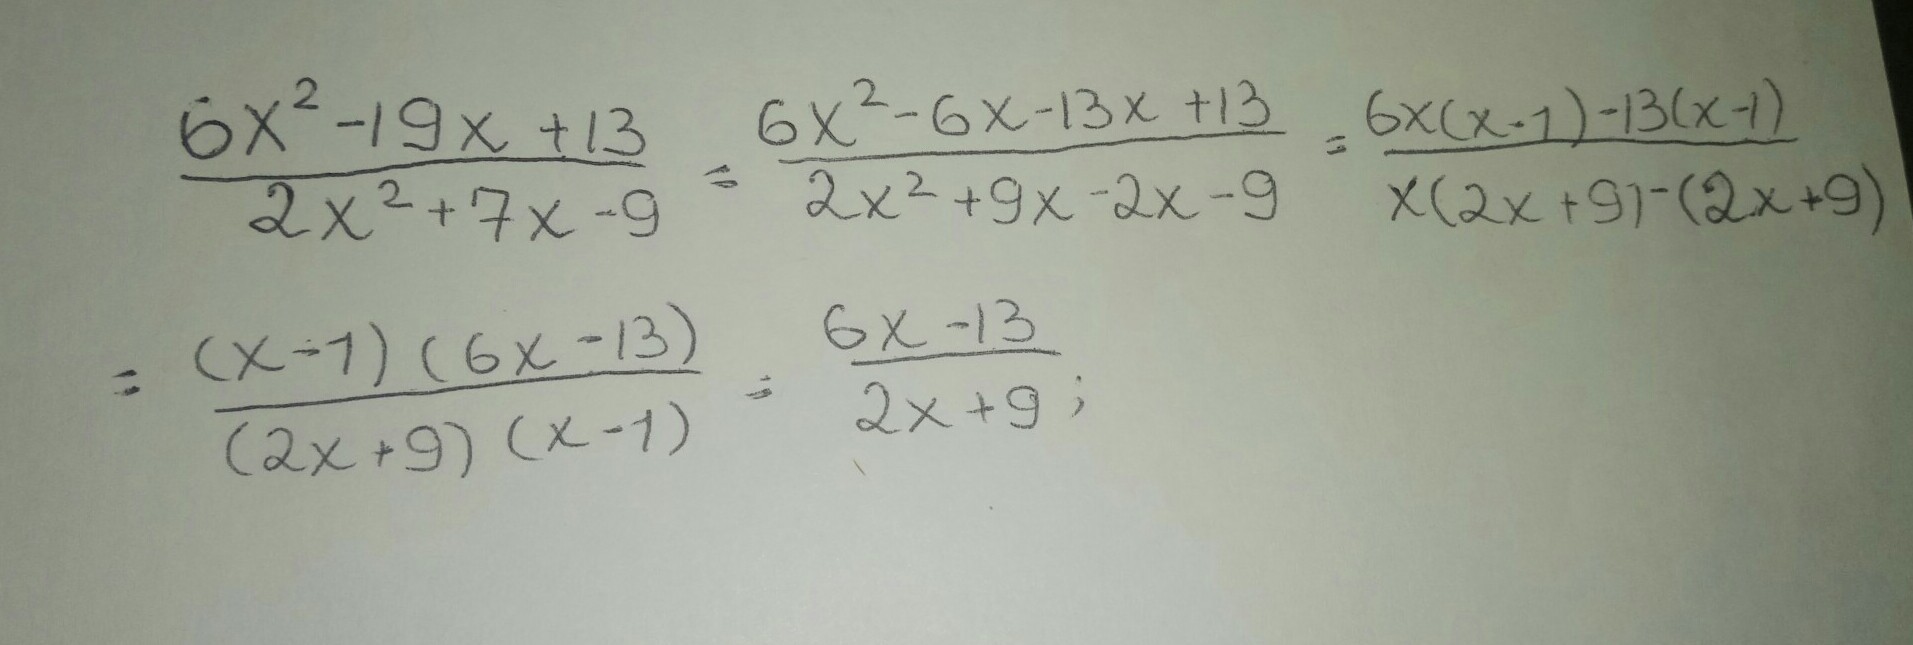 (6x²-19x+13)/(2x²+7x-9) = (6x²-6x-13x+13)/(2x²+9x-2x-9) = (6x(x-1)-13(x-1))/(x(2x+9)-(2x+9))
= ((x-1)(6x-13))/((2x+9)(x-1)) = (6x-13)/(2x+9);